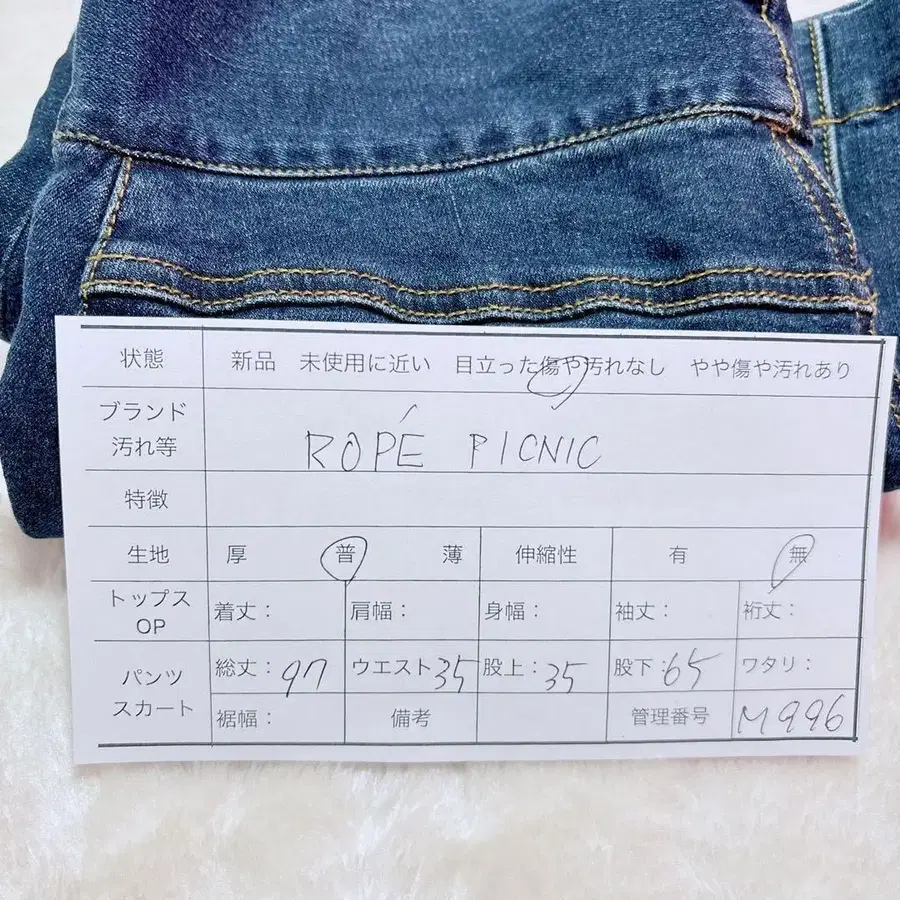 状態 新品 未使用に近い 目立った傷や汚れなし やや傷や汚れあり
ブランド
汚れ等 ROPÉ PICNIC
特徴
生地 厚 普 薄 伸縮性 有 無
トップス
OP 着丈: 肩幅: 身幅: 袖丈: 裄丈:
パンツ
スカート 総丈:97 ウエスト35 股上:35 股下:65 ワタリ:
裾幅: 備考 管理番号 M996